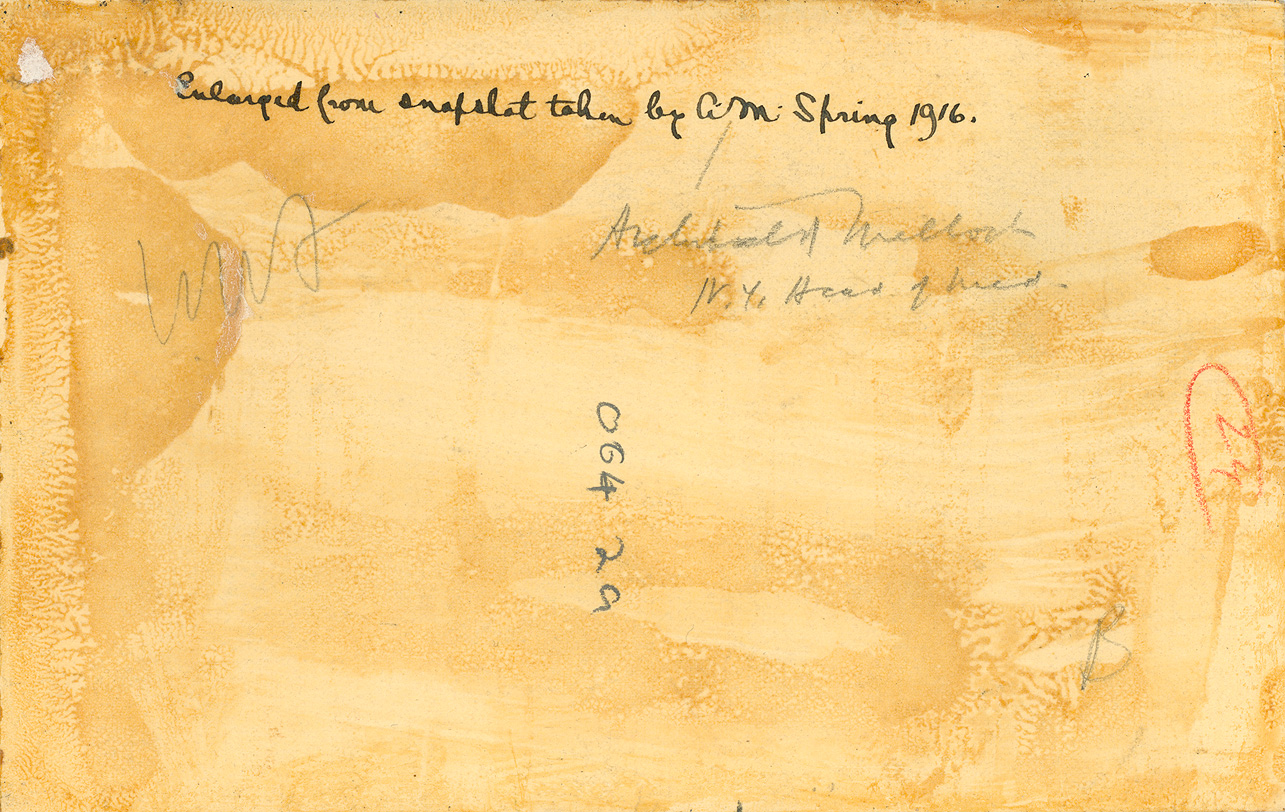 Enlarged from snapshot taken by A.M. Spring 1916.
Archibald Malloch
N.Y. Acad of Med.
064 29
24
B